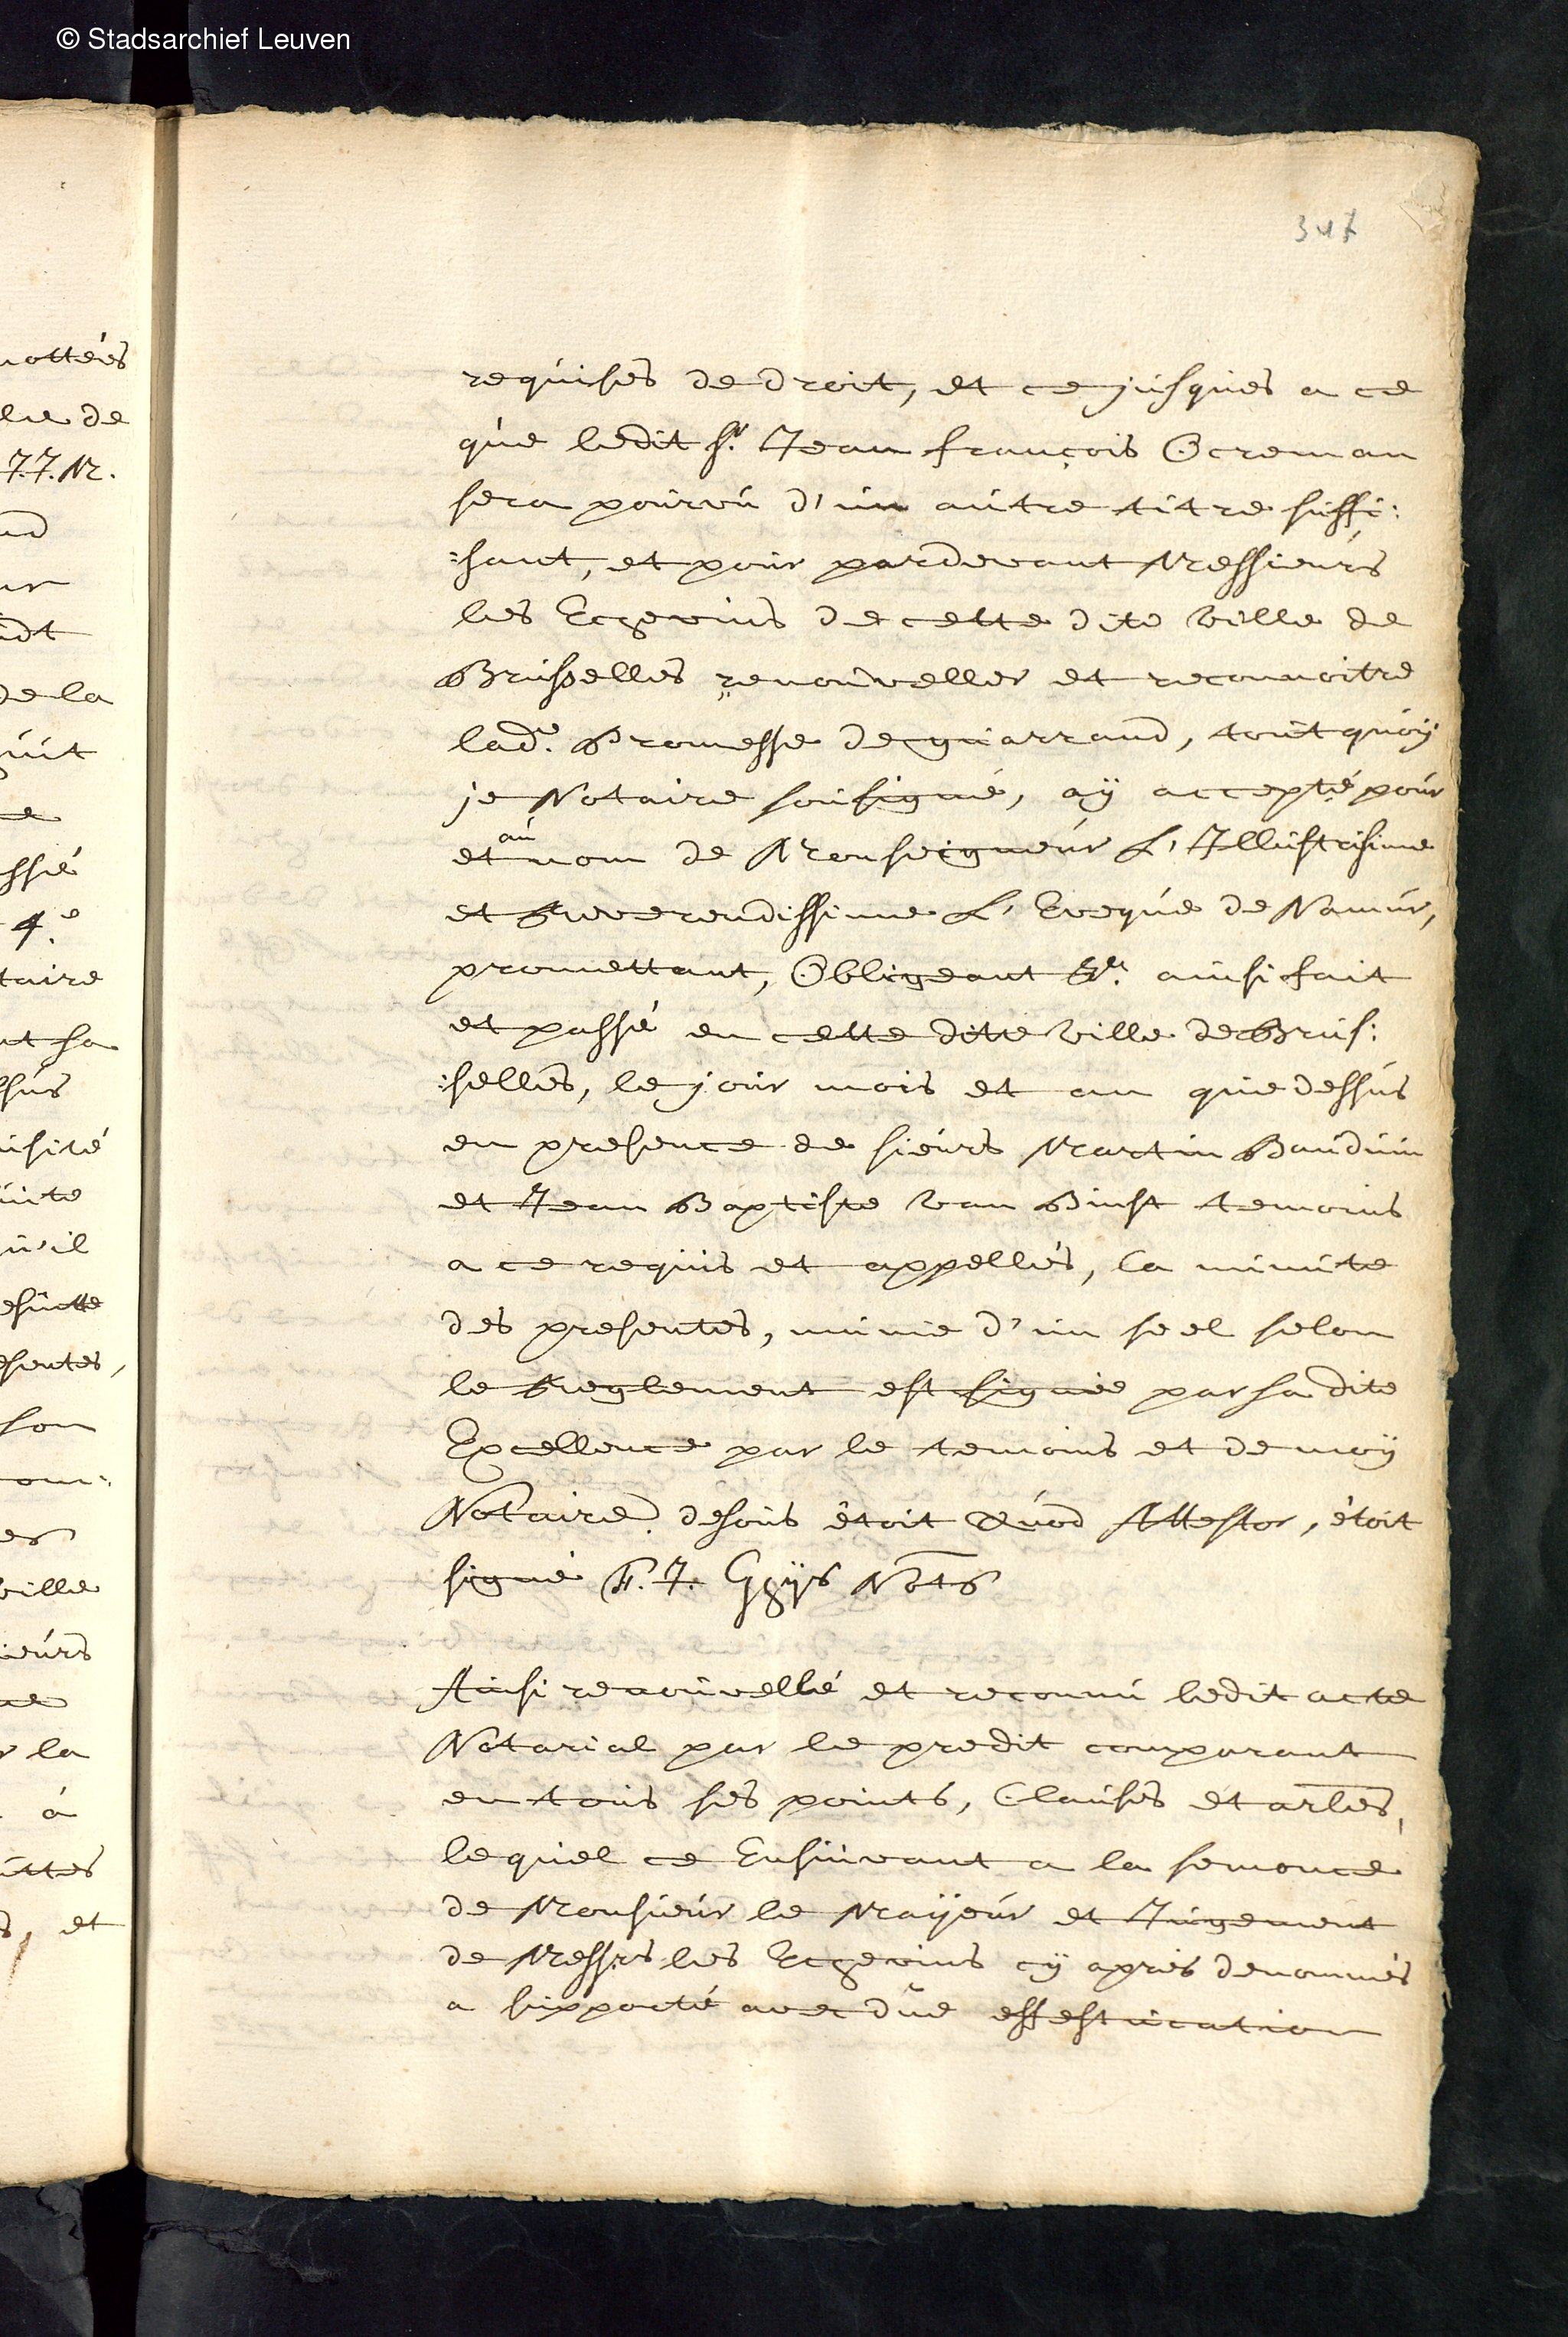 © Stadsarchief Leuven
347
requises de droit, et ce jusques a ce
que ledit sr. Jean françois Ocreman
sera pourvu d'un autre titre suffi:
:sant, et pour pardevant Messieurs
les Ecgevins de cette dite ville de
Brusselles renouveller et reconnoitre
lade. Promesse de guarrand, tout quoy
je Notaire sousigné, aÿ accepté pour
et au nom de Monseigneur L'Illustrisime
et Reverendissime L'Eveque de Namur,
promettant, Obligeant &a. ainsi fait
et passé en cette ditte ville de Brus:
:selles, le jour mois et an que dessus
en presence de sieurs Martin Bauduin
et Jean Baptiste van Binst temoins
a ce requis et appellés, la minute
des presentes, munie d'un seel selon
le Reglement est signée par sa dite
Excellence par le temoins et de moÿ
Notaire. desous étoit Quod Attestor, étoit
signé F. J. Gÿs Nots
Ainsi renouvellé et reconnu ledit acte
Notarial par le predit comparant
en tous ses points, Clauses et arles,
lequel ce Ensuivant a la semonce
de Monsieur le Maÿeur et Jugement
de Messrs les Ecgevins cÿ aprés denommés
a supporté avec düe effestucation
nottées
de la
77. M.
idt
de la
4e.
taire
sus
uite
qu'il
esentes,
son
ville
sieurs
la
a
et